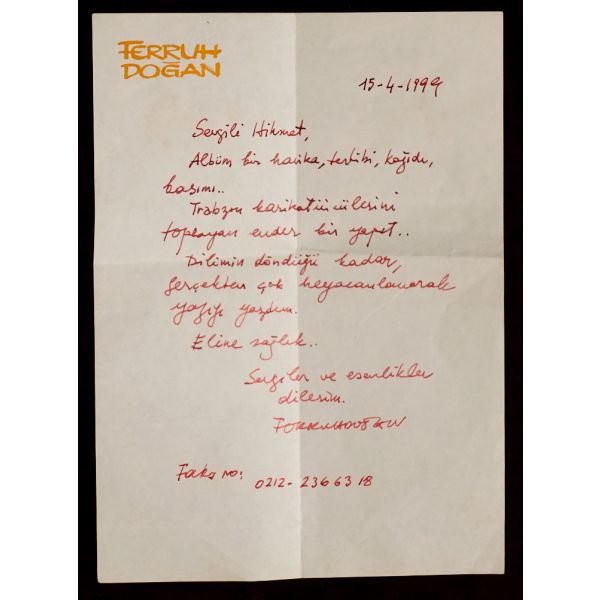 FERRUH
DOĞAN
15-4-1999
Sevgili Hikmet,
Albüm bir harika, tertibi, kağıdı,
basımı..
Trabzon karikatürcülerini
toplayan ender bir yapıt..
Dilimin döndüğü kadar,
gerçekten çok heyecanlanarak
yazıyı yazdım.
Eline sağlık..
Sevgiler ve esenlikler
dilerim.
FERRUH DOĞAN
Faks no: 0212-236 63 18